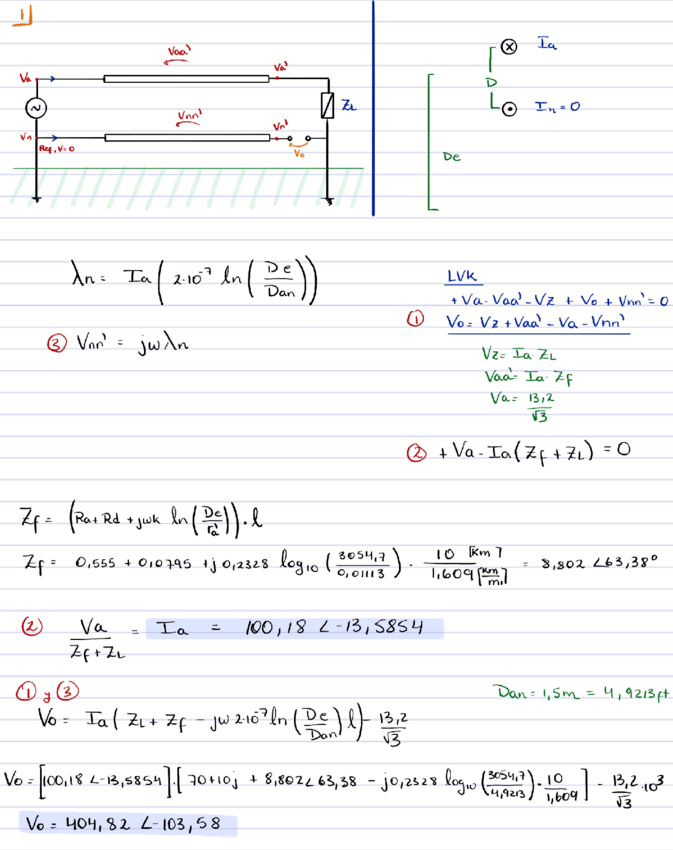 1
Vaa'
Va
Va'
ZL
Vnn'
Vn
Vn'
Ref, V=0
Vo
Ia
D
In=0
De
λn= Ia(2·10⁻⁷ ln(De/Dan))
③ Vnn' = jωλn
LVK
+Va-Vaa'-Vz + Vo + Vnn'=0
① Vo= Vz+Vaa'-Va-Vnn'
Vz= Ia·ZL
Vaa'= Ia·Zf
Va= 13,2/√3
② +Va-Ia(Zf+ZL)=0
Zf= (Ra+Rd+jωk ln(De/ra'))·l
Zf= 0,555 + 0,0795 +j0,2328 log₁₀(3054,7/0,01113)·10 [Km]/1,609[Km/mi] = 8,802 ∠63,38°
② Va/(Zf+ZL) = Ia = 100,18 ∠-13,5854
① y ③
Dan= 1,5m = 4,9213ft
Vo= Ia(ZL+Zf-jω2·10⁻⁷ln(De/Dan)l)-13,2/√3
Vo=[100,18 ∠-13,5854]·[70+10j + 8,802∠63,38 - j0,2328 log₁₀(3054,7/4,9213)·10/1,609] - 13,2/√3·10³
Vo= 404,82 ∠-103,58